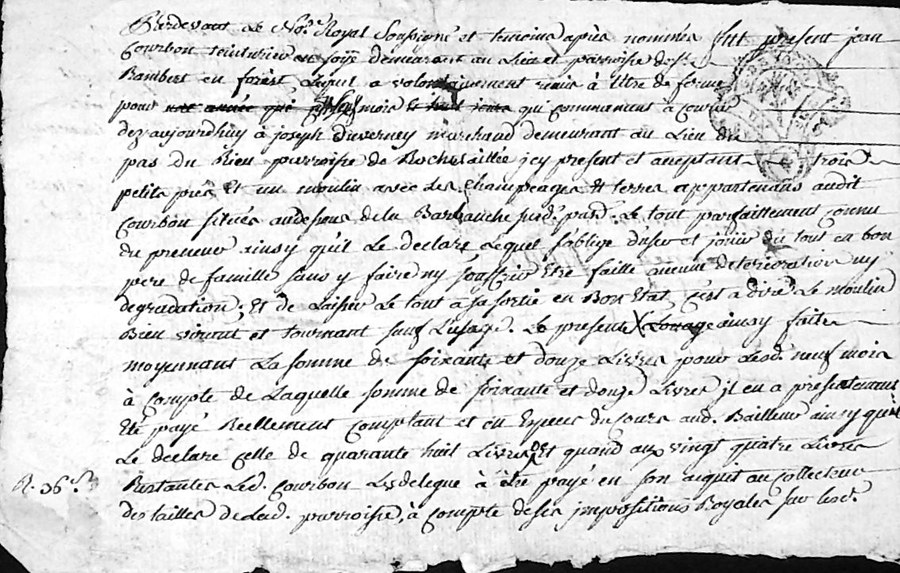 Pardevant le No.re Royal soussigné et temoins après nommés fut present jean
Courbon teinturier en soye demeurant au Lieu et parroisse de St
Rambert en forest Lequel a volontairement remis à titre de ferme
pour une année qui mois et huit jours qui commancent à courir
dez aujourdhuy à joseph Duverney marchand demeurant au Lieu du
pas du Rieu parroisse de Rochetaillée jcy present et acceptant trois
petits prés et un moulin avec les Champeages et terres appartenans audit
Courbon situés audessous de la Barbanche susd. parr. Le tout parfaittement connu
du preneur ainsy qu'il Le declare Lequel s'oblige d'user et jouir du tout en bon
pere de famille sans y faire ny souffrir être faitte aucune deterioration ny
degradation; Et de Laisser Le tout à sa sortie en Bon Etat, c'est a dire Le moulin
Bien virant et tournant sans Lusage. Le present X Louage ainsy faite
moyennant La somme de soixante et douze Livres pour Lesd. neuf mois
à compte de Laquelle somme de soixante et douze Livres jl en a presentement
Eté payé Reellement comptant et en Especes du cours aud. Bailleur ainsy qu'il
Le declare celle de quarante huit Livres Et quand aux vingt quatre Livres
R. 36 s. Restantes Led. Courbon Les delegue à être payé en son acquit au collecteur
des tailles de Lad. parroisse, à compte de ses jmpositions Royales sur lesd.